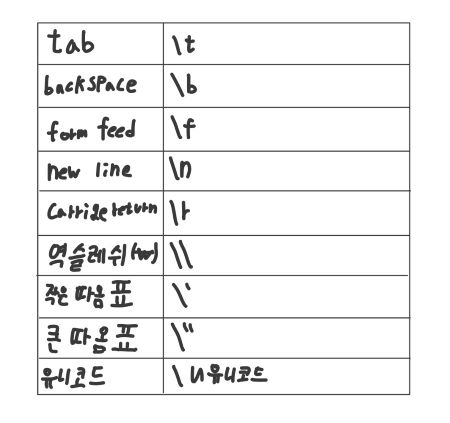 tab \t
backspace \b
form feed \f
new line \n
Carrige return \r
역슬레쉬 \\
작은 따옴표 \'
큰 따옴표 \"
유니코드 \u유니코드